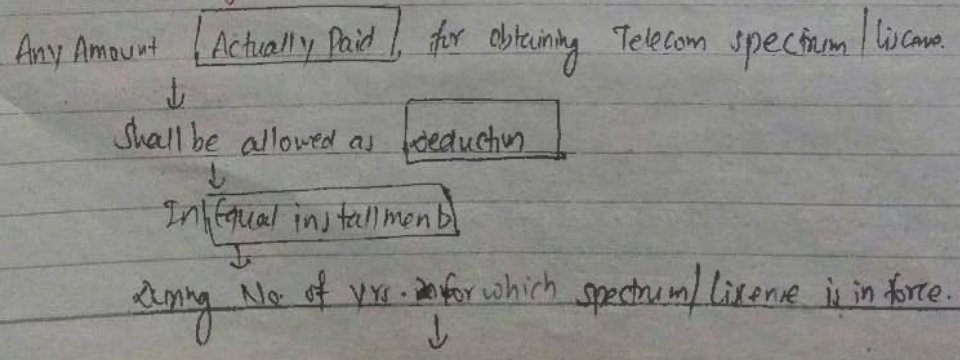 Any Amount Actually Paid, for obtaining Telecom spectrum / liscence.
↓
Shall be allowed as deduction
↓
In Equal installment
↓
During No. of yrs. for which spectrum / License is in force.
↓